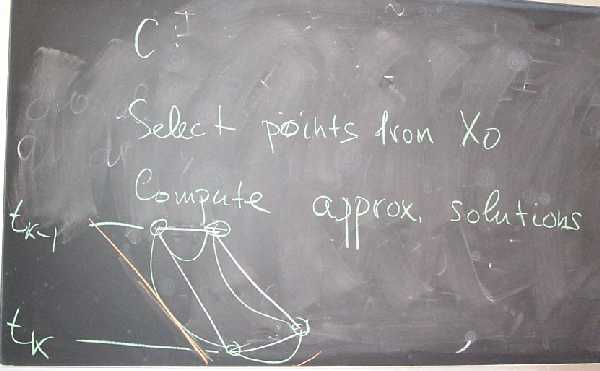 C?
Select points from X0
Compute approx. solutions
tk-1
tk